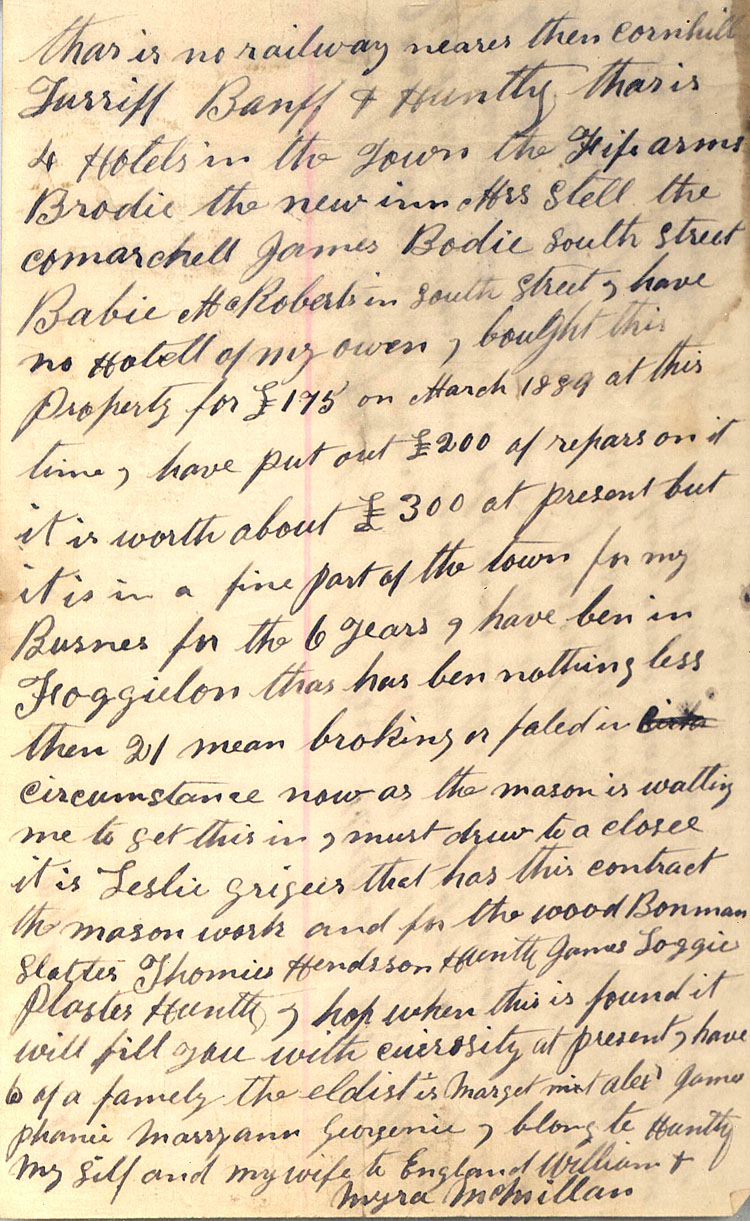 thar is no railway nearer then cornhill
Turriff Banff & Huntly thar is
4 Hotels in the Town the Fife arms
Brodie the new inn Mrs Stell the
comarchell James Bodie South Street
Babie McRoberts in South Street I have
no Hotell of my owen I bought this
Property for £175 on March 1889 at this
time I have put out £200 of repars on it
it is worth about £300 at present but
it is in a fine part of the town for my
Busnes for the 6 years I have ben in
Foggielon thar has ben nothing less
then 21 mean broking or faled in
circumstance now as the mason is watting
me to get this in I must druw to a closee
it is Leslie grigers that has this contract
the mason work and for the wood Bonman
Slatter Thomies Hendsson Huntly James Loggie
Plaster Huntly I hop when this is found it
will fill you with cuerosity at present I have
6 of a famely the eldist is Marget nixt alexr James
phanie Marryann Georgenie I blong to Huntly
My Self and my wife to England William &
Myra McMillan